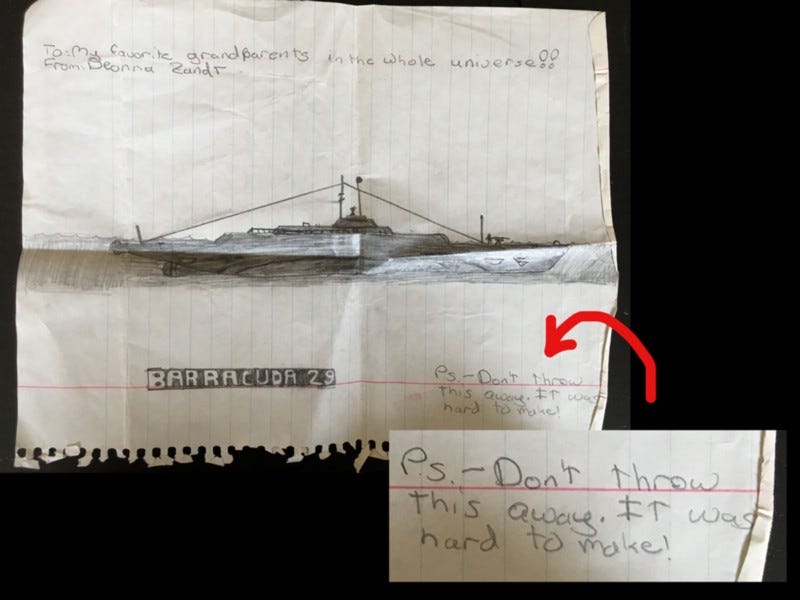 To: My favorite grandparents in the whole universe!!
From: Deanna Zandt
BARRACUDA 29
P.s.- Don't throw
this away. It was
hard to make!
P.s.- Don't throw
this away. It was
hard to make!